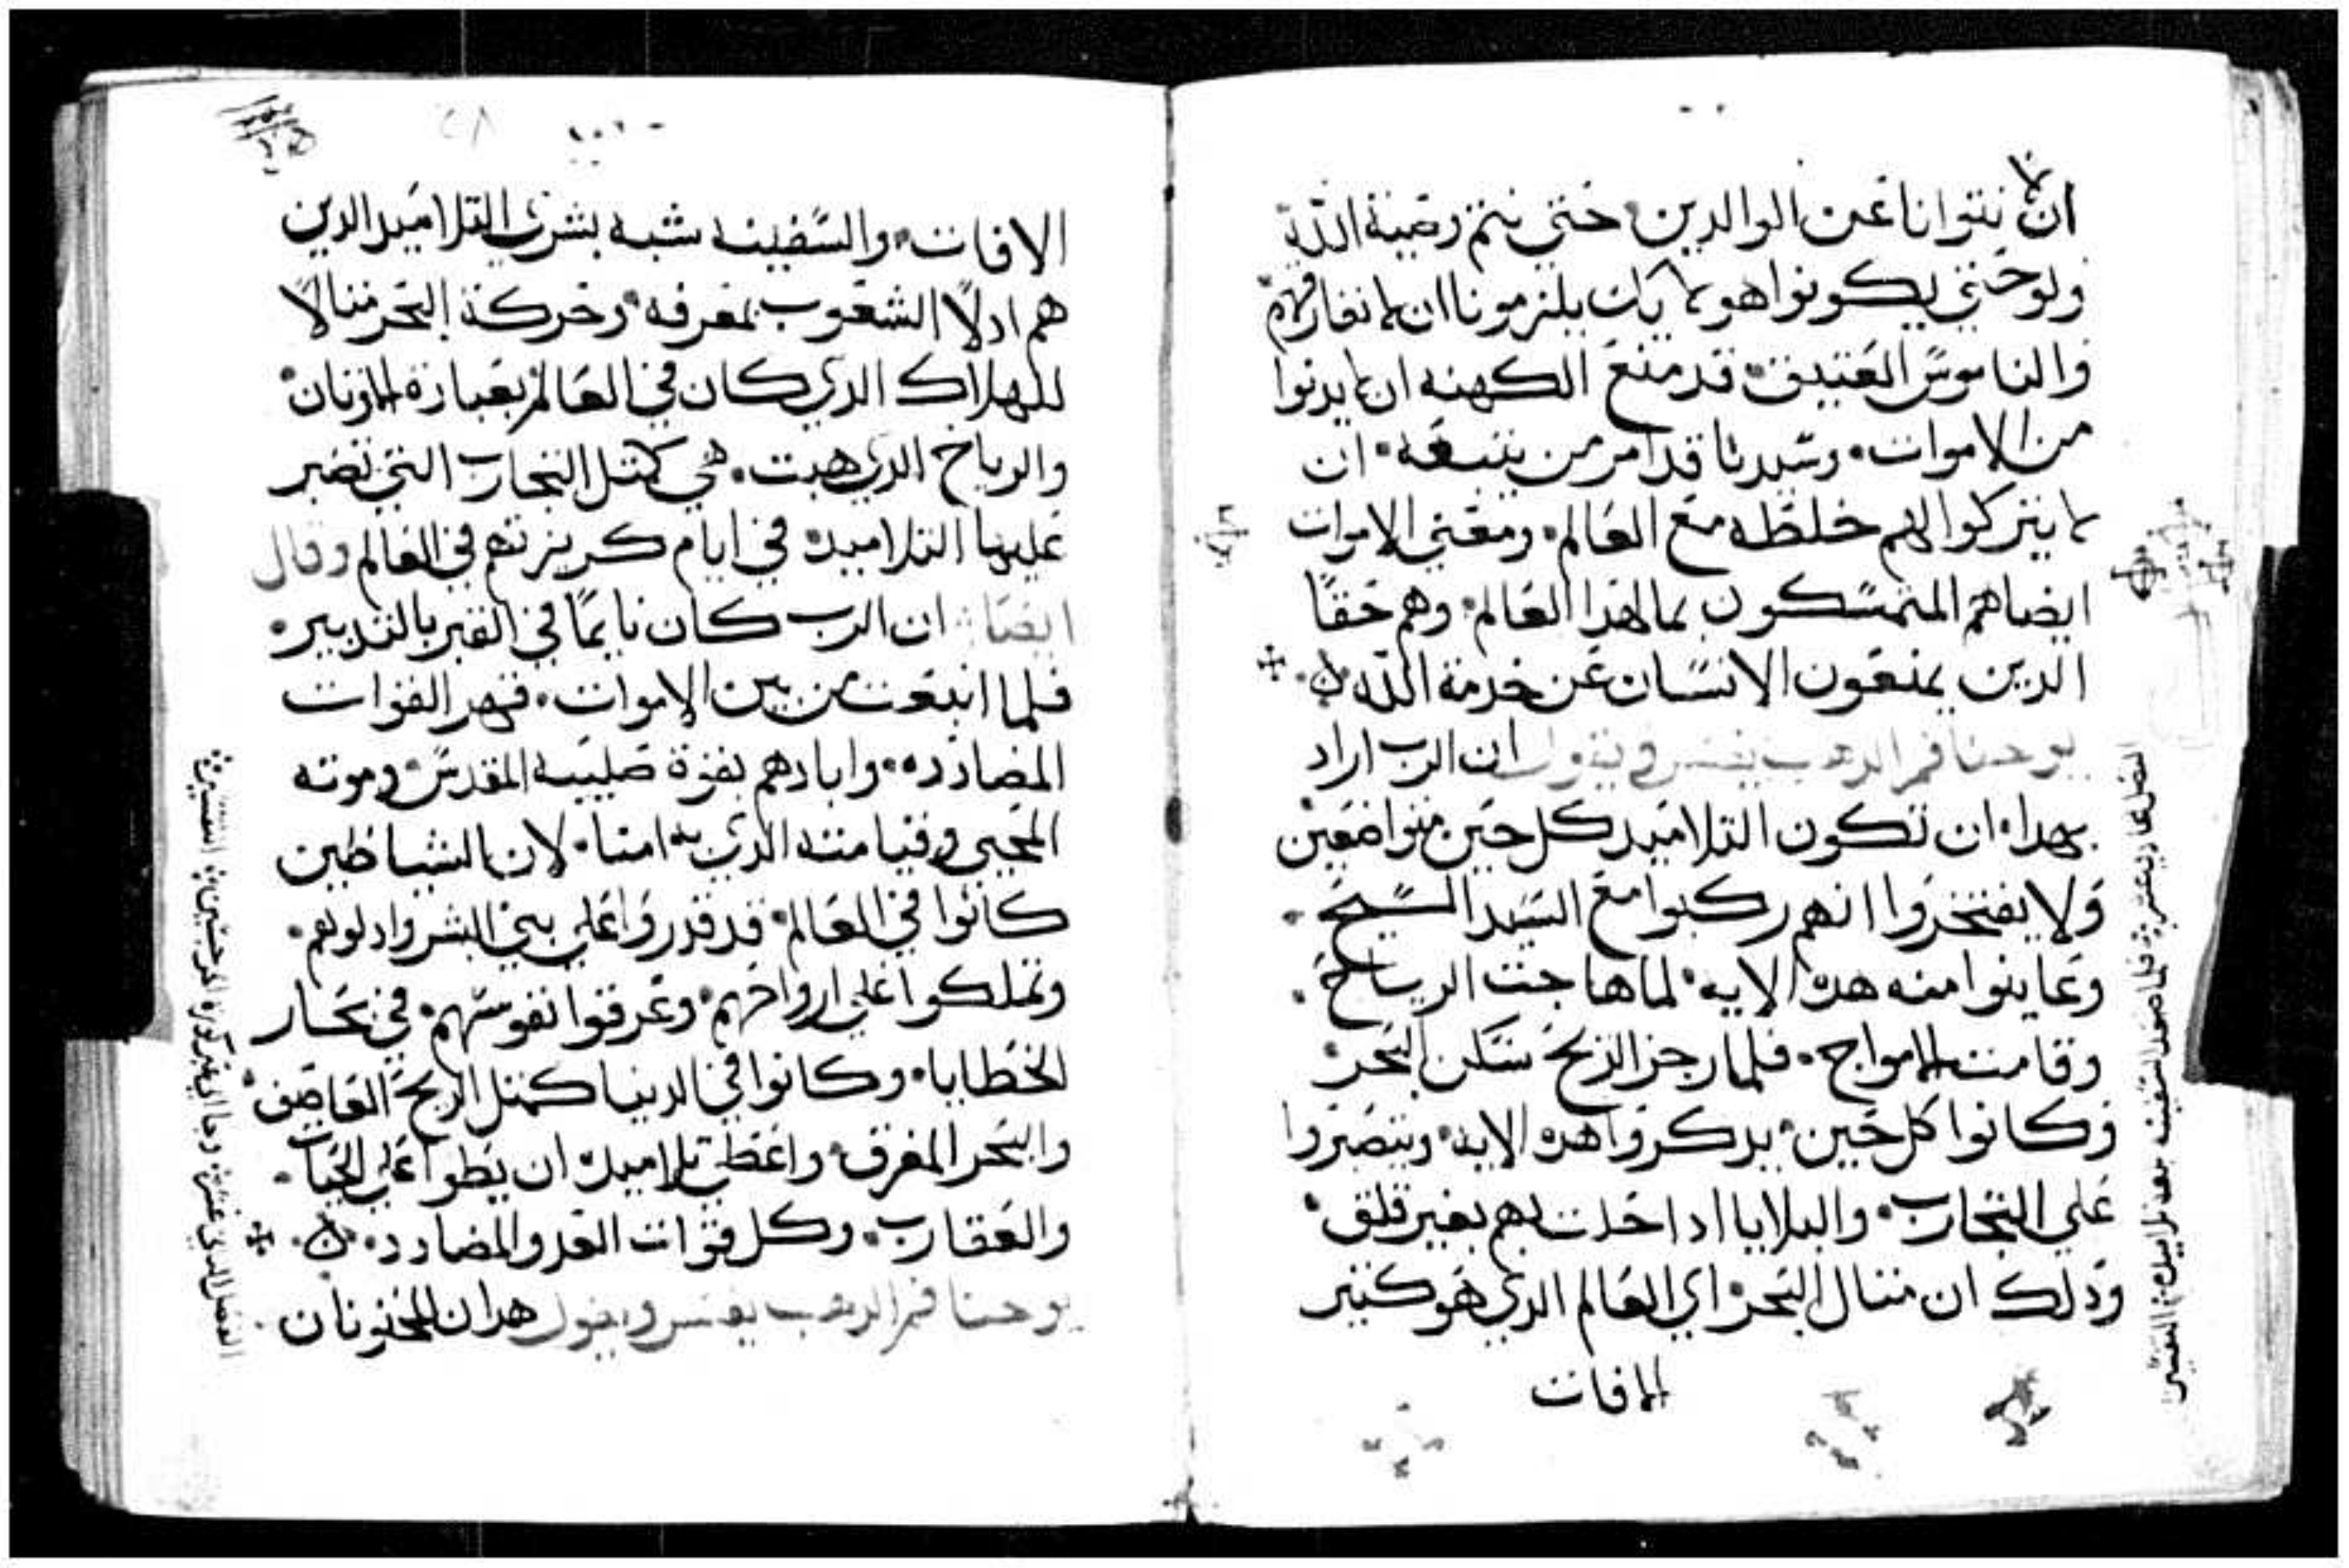 ان لا نتوانا عن الوالدين حتي نتم وصية الله
ولو حتي يكونوا هولايك يلزمونا ان لا نفارقهم
والناموس العتيق قد منع الكهنه ان لا يدنوا
من الاموات وسيدنا قد امر من يتبعه ان
لا يتركوا لهم خلطه مع العالم ومعني الاموات
ايضا هم المتمسكون بمال هدا العالم وهم حقًا
الدين يمنعون الانسان عن خدمة الله
يوحنا فم الدهب يفسر ويقول ان الرب اراد
بهدا ان تكون التلاميد كل حين متواضعين
ولا يفتخروا انهم ركبوا مع السيد المسيح
وعاينوا منه هده الايه لما هاجت الرياح
وقامت الامواج فلما رجز الريح سكن البحر
وكانوا كل حين يدكروا هده الايه ويتصبروا
علي التجارب والبلايا ادا حلت بهم بغير قلق
ودلك ان متال البحر اي العالم الدي هو كتير
الافات
الافات والسفينه شبه بشري التلاميد الدين
هم ادلا الشعوب بمعرفه وحركة البحر متالا
للهلاك الدي كان في العالم بعبادة الاوتان
والرياح الدي هبت هي كمتل التجارب التي تصبر
عليها التلاميد في ايام كرينتهم في العالم وقال
ايضا ان الرب كان نايمًا في القبر بالتدبير
فلما انبعت من بين الاموات فقهر القوات
المضادده وابادهم بقوة صليبه المقدس وموته
المحيي وقيامته الدي به امنا لان الشياطين
كانوا في العالم قد قدروا علي بني البشر وادلوهم
وتملكوا علي ارواحهم وغرقوا نفوسهم في بحار
الخطايا وكانوا في الدنيا كمتل الريح العاصف
والبحر المغرق واعطي تلاميده ان يطوا علي الحيات
والعقارب وكل قوات العدو المضادد
يوحنا فم الدهب يفسر ويقول هدان المجنونان